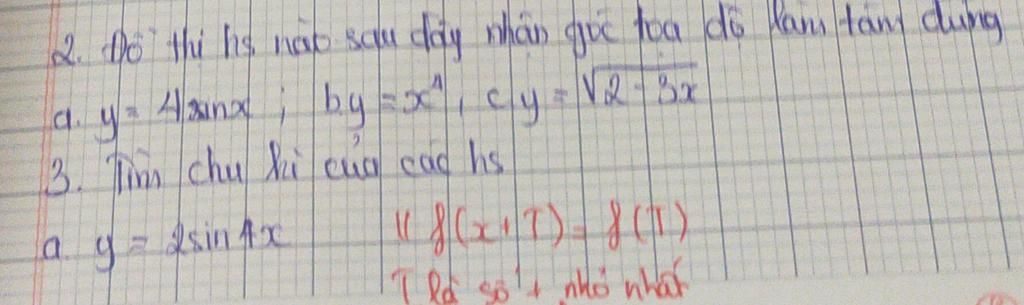 2. Đồ thị hs nào sau đây nhận gốc tọa độ làm tâm đứng
a. y = 4sinx ; b y = x⁴, c, y = √2 - 3x
3. Tìm chu kì của các hs
a. y = 2sin4x f(x+T) = f(T)
T là số + nhỏ nhất